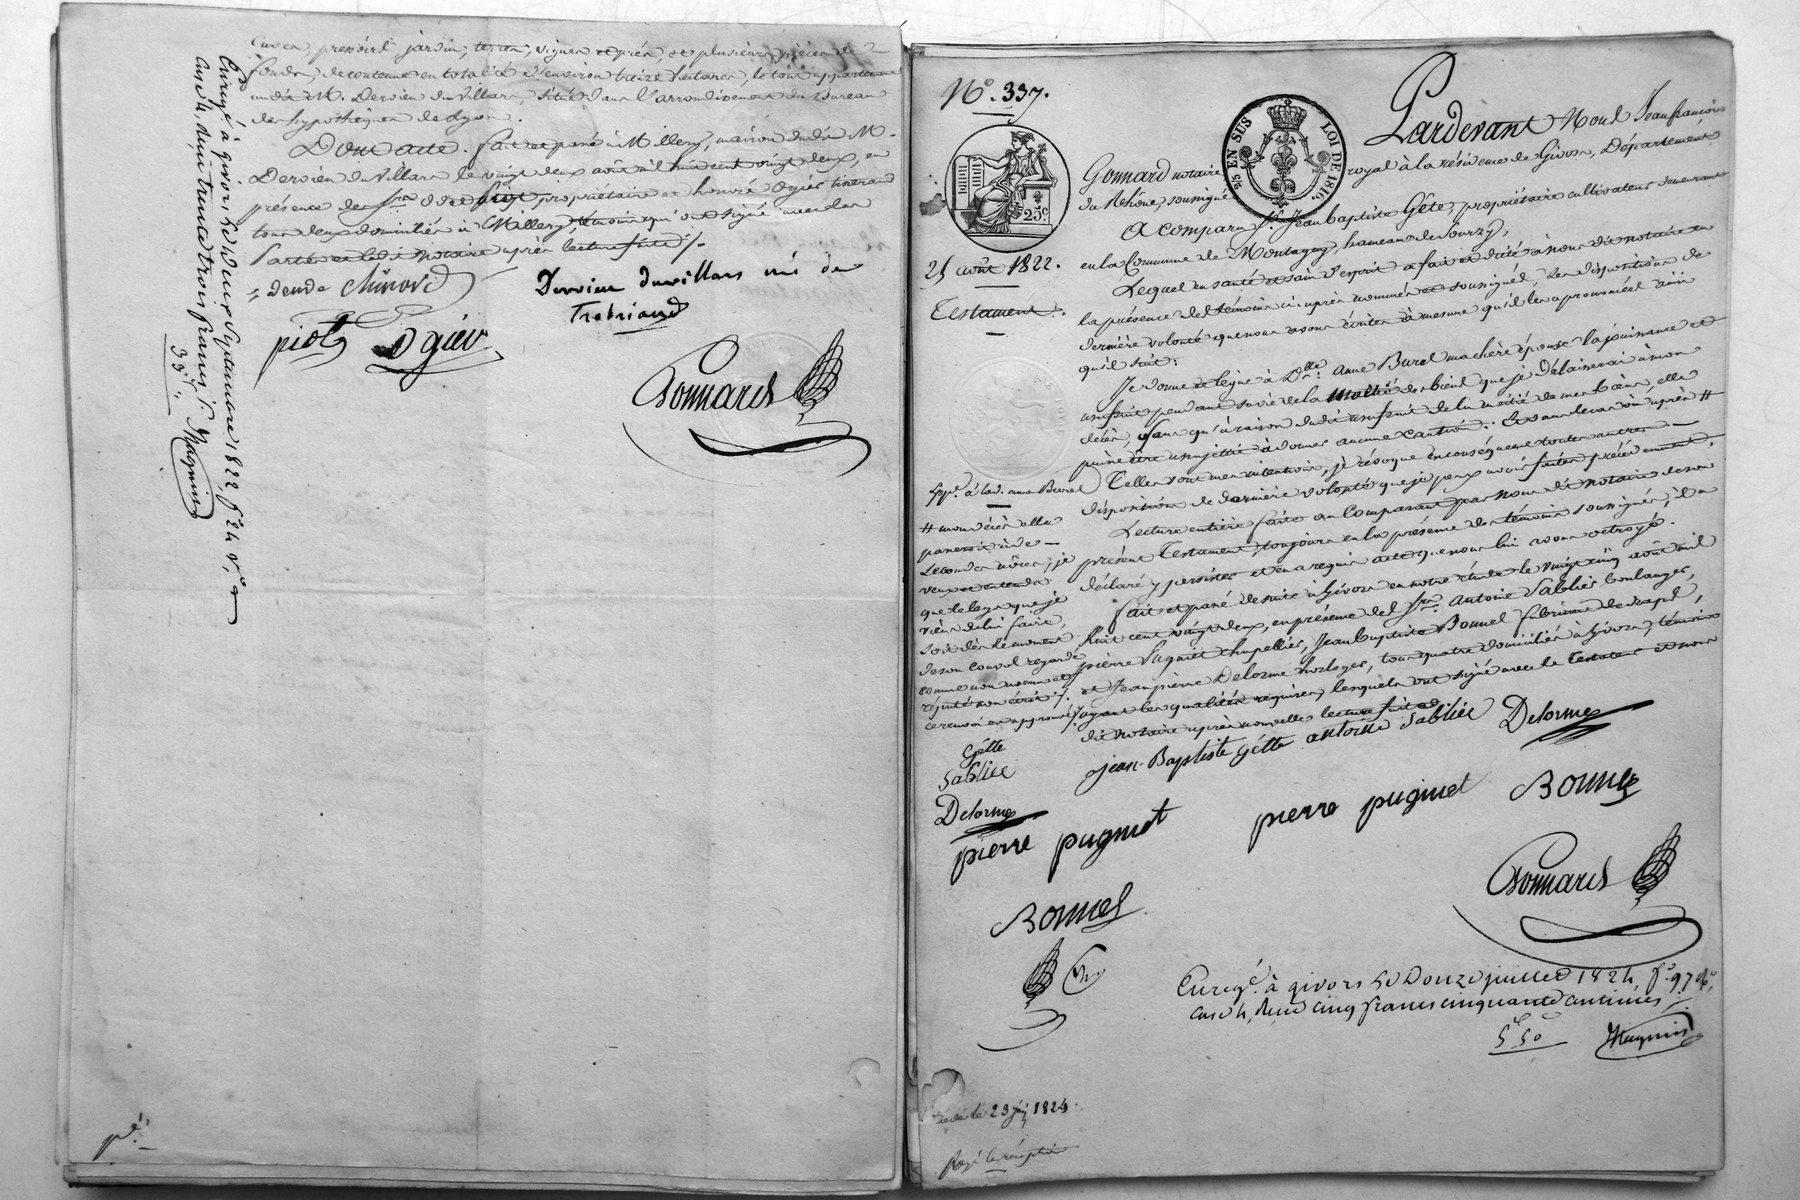 Cuves, pressoir, jardin, terres, vignes et prés, et plusieurs pièces de
fonds, de contenue en totalité d'environ treize hectares, le tout appartenant
audit M. Dervieu du Villars, situé dans l'arrondissement du Bureau
des hypothèques de Lyon.
Dont acte. fait et passé à Millery, maison dudit M.
Dervieu du Villars le vingt deux août mil huit cent vingt deux, en
présence des Srs piot propriétaire et honoré Ogier tisserand
tous deux domiciliés à Millery, témoins qui ont signé avec les
Parties et ledit notaire après lecture faite ./.
Dervieu duvillars né de
Trebriand
piot Ogier
Gonnard
Enregé à givors le deux Septembre 1822, fo 24 Vo
Case 4, reçu trente trois francs
33f "
Magnin
pé
No. 337.
25c
25 août 1822.
Testament.
2/5 EN SUS LOI DE 1816.
Pardevant Nous Jean françois
Gonnard notaire royal à la résidence de Givors, Département
du Rhône, soussigné
A comparu Sr. Jean baptiste Gête, propriétaire cultivateur demeurant
en la Commune de Montagny, hameau de Sourzy,
Lequel en santé et sain d'esprit a fait et dicté à nous dit notaire en
la présence des témoins ci-après nommés et soussignés, ses dispositions de
dernière volonté que nous avons écrites à mesure qu'il les a prononcées ainsi
qu'il suit:
Je donne et lègue à Dlle. Anne Burel ma chère épouse la jouissance et
usufruit pendant sa vie de la moitié des biens que je délaisserai à mon
décès, sans qu'à raison dudit usufruit de la moitié de mes biens, elle
puisse être assujettie à donner aucune caution. Et dans le cas où après #
Telles sont mes intentions, je révoque en conséquence toutes autres
dispositions de dernière volonté que je peux avoir faites précédemment.
Lecture entière faite au Comparant par nous dit notaire de son
présent Testament, toujours en la présence des témoins soussignés, il a
déclaré y persister et en a requis acte que nous lui avons octroyé.
fait et passé de suite à Givors en notre étude le vingt cinq août mil
huit cent vingt deux, en présence des Srs. Antoine Sablier boulanger,
pierre Pugniet chapellier, Jean baptiste Bonnel fabricant de
et Jean pierre Delorme horloger, tous quatre domiciliés à Givors, témoins
ayant les qualités requises, lesquels ont signé avec le Testateur et nous
dit notaire après nouvelle lecture faite
Expé. à lad. anne Burel
# mon décès elle
passerait à de
secondes nôces, je
veux et entends
que le legs que je
viens de lui faire,
soit dès le moment
de son convol regardé
comme non avenu et
réputé non écrit ./.
ce renvoi en approuvé
Gête
Sablier
Delorme
pierre pugniet
Bonnel
jean-Baptiste gêtte antoine Sablier Delorme
pierre pugniet Bonnel
Gonnard
Enregé. à givors le Douze juillet 1824, fo. 97 Vo.
case 4, reçu cinq francs cinquante centimes
5f 50c
Magnin
décédé le 23 1824